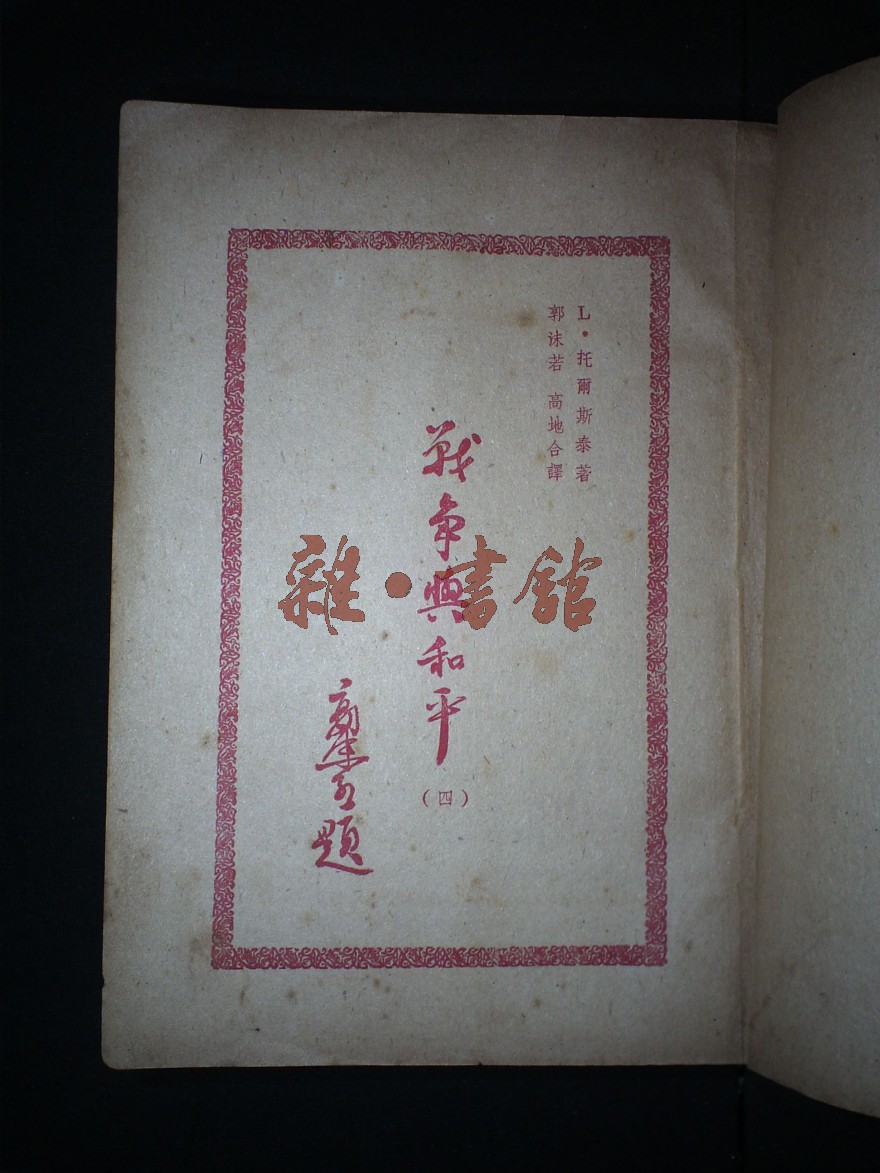 L•托爾斯泰著
郭沫若 高地合譯
戰争與和平
(四)
郭沫若題
雜•書館